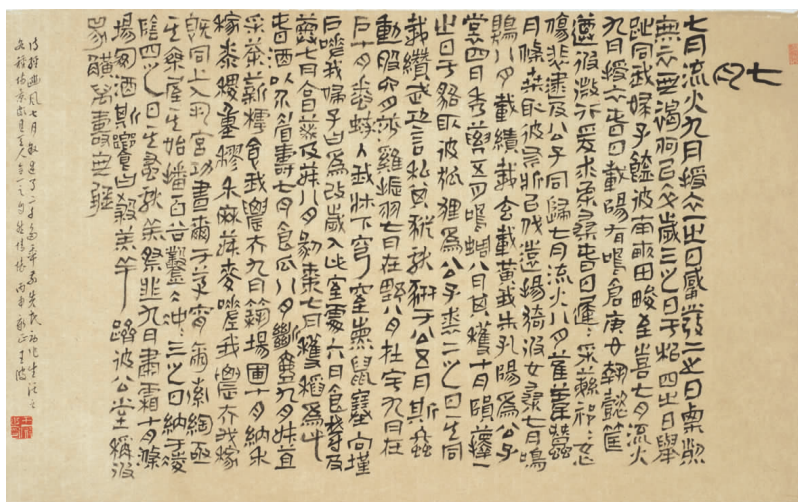 七月
七月流火九月授衣一之日觱發二之日栗烈
無衣無褐何以卒歲三之日于耜四之日舉
趾同我婦子饁彼南畝田畯至喜七月流火
九月授衣春日載陽有鳴倉庚女執懿筐
遵彼微行爰求柔桑春日遲遲采蘩祁祁女心
傷悲殆及公子同歸七月流火八月萑葦蠶
月條桑取彼斧斨以伐遠揚猗彼女桑七月鳴
鵙八月載績載玄載黃我朱孔陽為公子
裳四月秀葽五月鳴蜩八月其穫十月隕蘀一
之日于貉取彼狐狸為公子裘二之日其同
載纘武功言私其豵獻豜于公五月斯螽
動股六月莎雞振羽七月在野八月在宇九月在
戶十月蟋蟀入我牀下穹窒熏鼠塞向墐
戶嗟我婦子曰為改歲入此室處六月食鬱及
薁七月亨葵及菽八月剝棗十月穫稻為此
春酒以介眉壽七月食瓜八月斷壺九月叔苴
采荼薪樗食我農夫九月築場圃十月納禾
稼黍稷重穋禾麻菽麥嗟我農夫我稼
既同上入執宮功晝爾于茅宵爾索綯亟
其乘屋其始播百谷鑿冰沖沖三之日納于凌
陰四之日其蚤獻羔祭韭九月肅霜十月滌
場朋酒斯饗曰殺羔羊躋彼公堂稱彼
兕觥萬壽無疆
詩經豳風七月
丙申